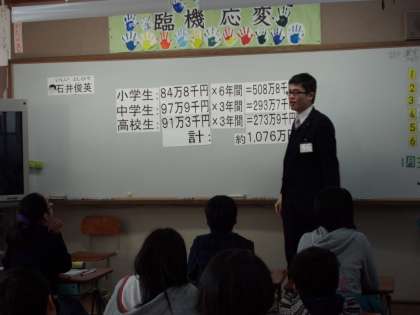 臨機応変
いしい としひで
石井俊英
小学生:84万8千円×6年間=508万8千
中学生:97万9千円×3年間=293万7千
高校生:91万3千円×3年間=273万9千
計: 約1,076万円
1
2
3
4
5
6
月